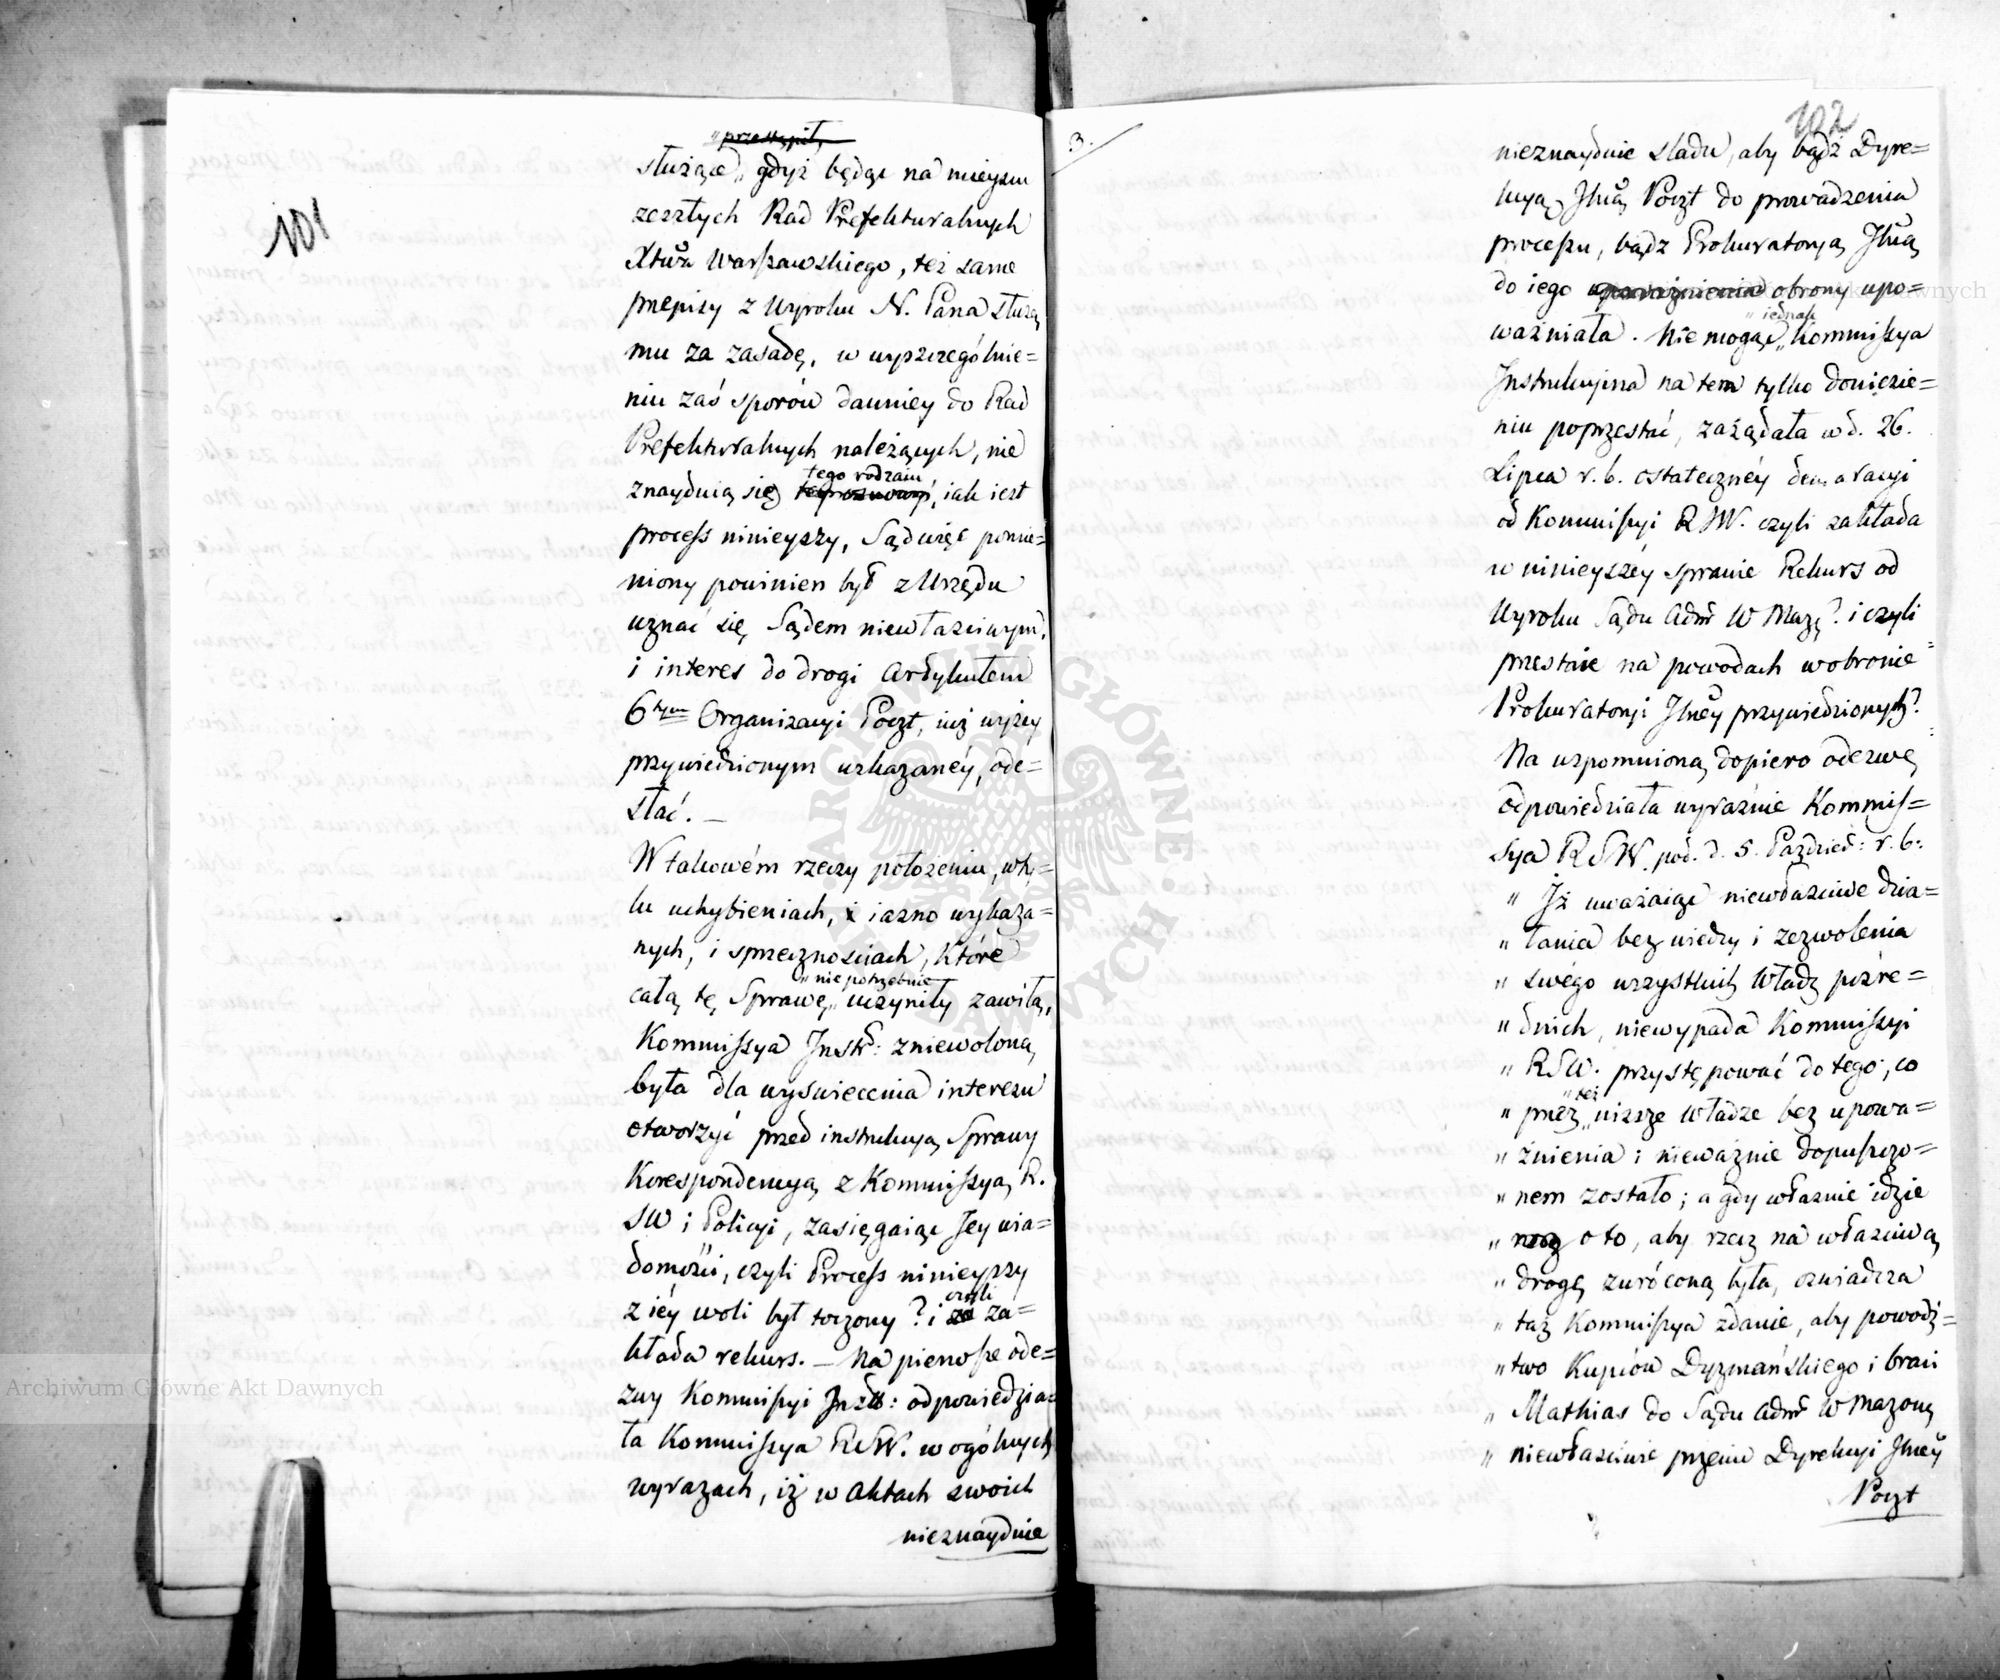 101
służące, gdyż będąc na mieyscu
zeszłych Rad Prefekturalnych
Xtwa Warszawskiego, też same
przepisy z Wyroku N. Pana służą
mu za zasadę, w wyszczególnie=
niu zaś sporów dawniey do Rad
Prefekturalnych należących, nie
znayduią się tego rodzaiu, iak iest
process ninieyszy, Sąd więc pomie=
niony powinien był z Urzędu
uznać się Sądem niewłaściwym,
i interes do drogi Artykułem
6tym Organizacyi Poczt, iuż wyżey
przywiedzionym wskazanéy, ode=
słać. —
W takowém rzeczy położeniu, w ty=
lu uchybieniach, i iasno wykaza=
nych, i sprzecznościach, które
całą tę Sprawę „nie potrzebnie uczyniły zawiłą,
Kommissya Instr: zniewoloną
była dla wyświecenia interesu
otworzyć przed instrukcyą Sprawy
Korespondencyą z Kommissyą R.
SW i Policyi, zasięgaiąc Jey wia=
domości, czyli Process ninieyszy
z iéy woli był toczony? i czyli za=
kłada rekurs. — Na pierwsze ode=
zwy Kommissyi Instr: odpowiedzia=
ła Kommissya RSW. w ogólnych
wyrazach, iż w Aktach swoich
nieznayduie
3.
102
nieznayduie sladu, aby bądź Dyre=
kcyą Jlną Poczt do prowadzenia
processu, bądz Prokuratoryą Jlną
do iego obrony upo=
ważniała. Nie mogąc „iednak Kommissya
Instrukcyina na tem tylko doniesie=
niu poprzestać, zażądała w d. 26.
Lipca r. b. ostatecznéy
od Kommissyi RSW. czyli zakłada
w ninieyszéy sprawie Rekurs od
Wyroku Sądu Admi W Mazo? i czyli
przestaie na powodach w obronie
Prokuratoryi Jlnéy przywiedzionych?
Na wspomnioną dopiero odezwę
odpowiedziała wyraźnie Kommis=
sya RSW. pod. d. 5. Paździer: r. b.
„ Iż uważaiąc niewłaściwe dzia=
„ łania bez wiedzy i zezwolenia
„ swego wszystkich Władz pośre=
„ dnich, niewypada Kommissyi
„ RSW. przystępować do tego, co
„ przez „też niższe Władze bez upowa=
„ żnienia i nieważnie dopuszczo=
„ nem zostało; a gdy właśnie idzie
„ o to, aby rzecz na właściwą
„ drogę zwróconą była, oświadcza
„ taż Kommissya zdanie, aby powodz=
„ two Kupców Dyzmańskiego i braci
„ Mathias do Sądu Admi W Mazowę
„ niewłaściwie przeciw Dyrekcyi Jlnéy
Poczt
Archiwum Główne Akt Dawnych
ARCHIWUM GŁÓWNE AKT DAWNYCH